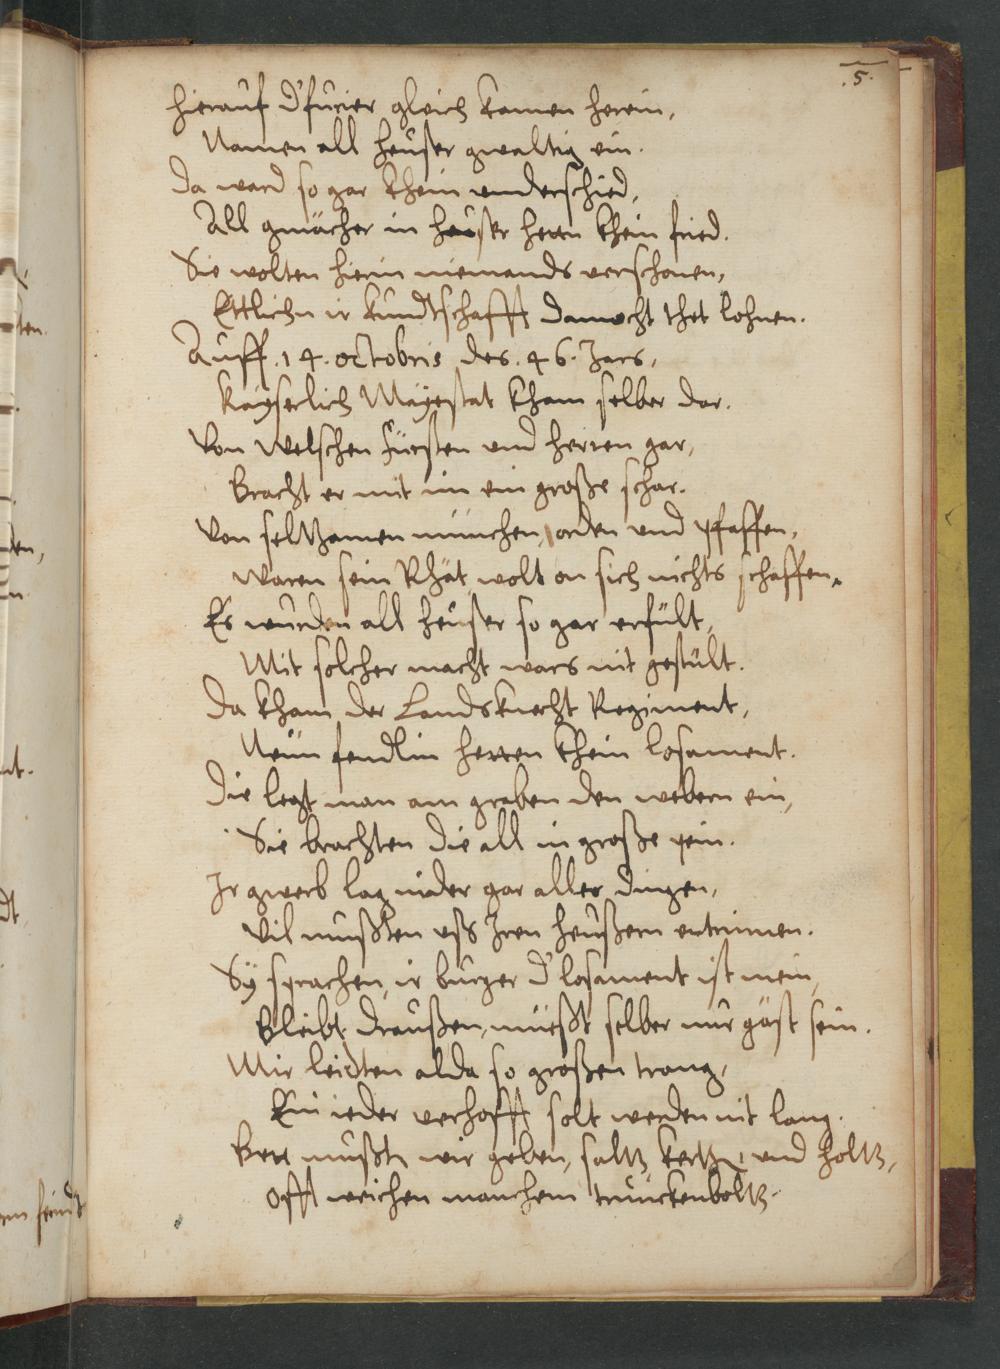 .5.
Hierauf d'furier gleich kamen herein,
Namen all heuser gwaltig ein.
Da ward so gar khein underschied,
All gmächer in heuser hetten khein fried.
Sie wolten hierin niemands verschonen,
Ettlichn ir kundtschafft dannocht thet lohnen.
Auff .14. octobris des .46. Jars,
Kayserlich Mayestat kham selber dar.
Von Welschen Fürsten und herren gar,
Bracht er mit im ein große schar.
Von selthzamen münchen, orden und pfaffen,
Waren sein Rhät, wolt on sich nichts schaffen.
Es wurden all heuser so gar erfült,
Mit solcher macht wars nit gestült.
Da kham der Landsknecht Regiment,
Neün fendlin hetten khein losament.
Die legt man am graben den webern ein,
Sie brachten die all in große pein.
Ir gwerb lag nider gar aller dingen,
Vil mußten uß Iren heußern entrinnen.
Sÿ sprachen, ir burger d'losament ist mein,
Bleibt draußen, müeßt selber nur gäst sein.
Mir leidten alda so großen trang,
Ein ieder verhofft solt werden nit lang.
Bett mußtn wir geben, saltz, kertzn, und holtz,
Offt weichen manchem truncknboltz.